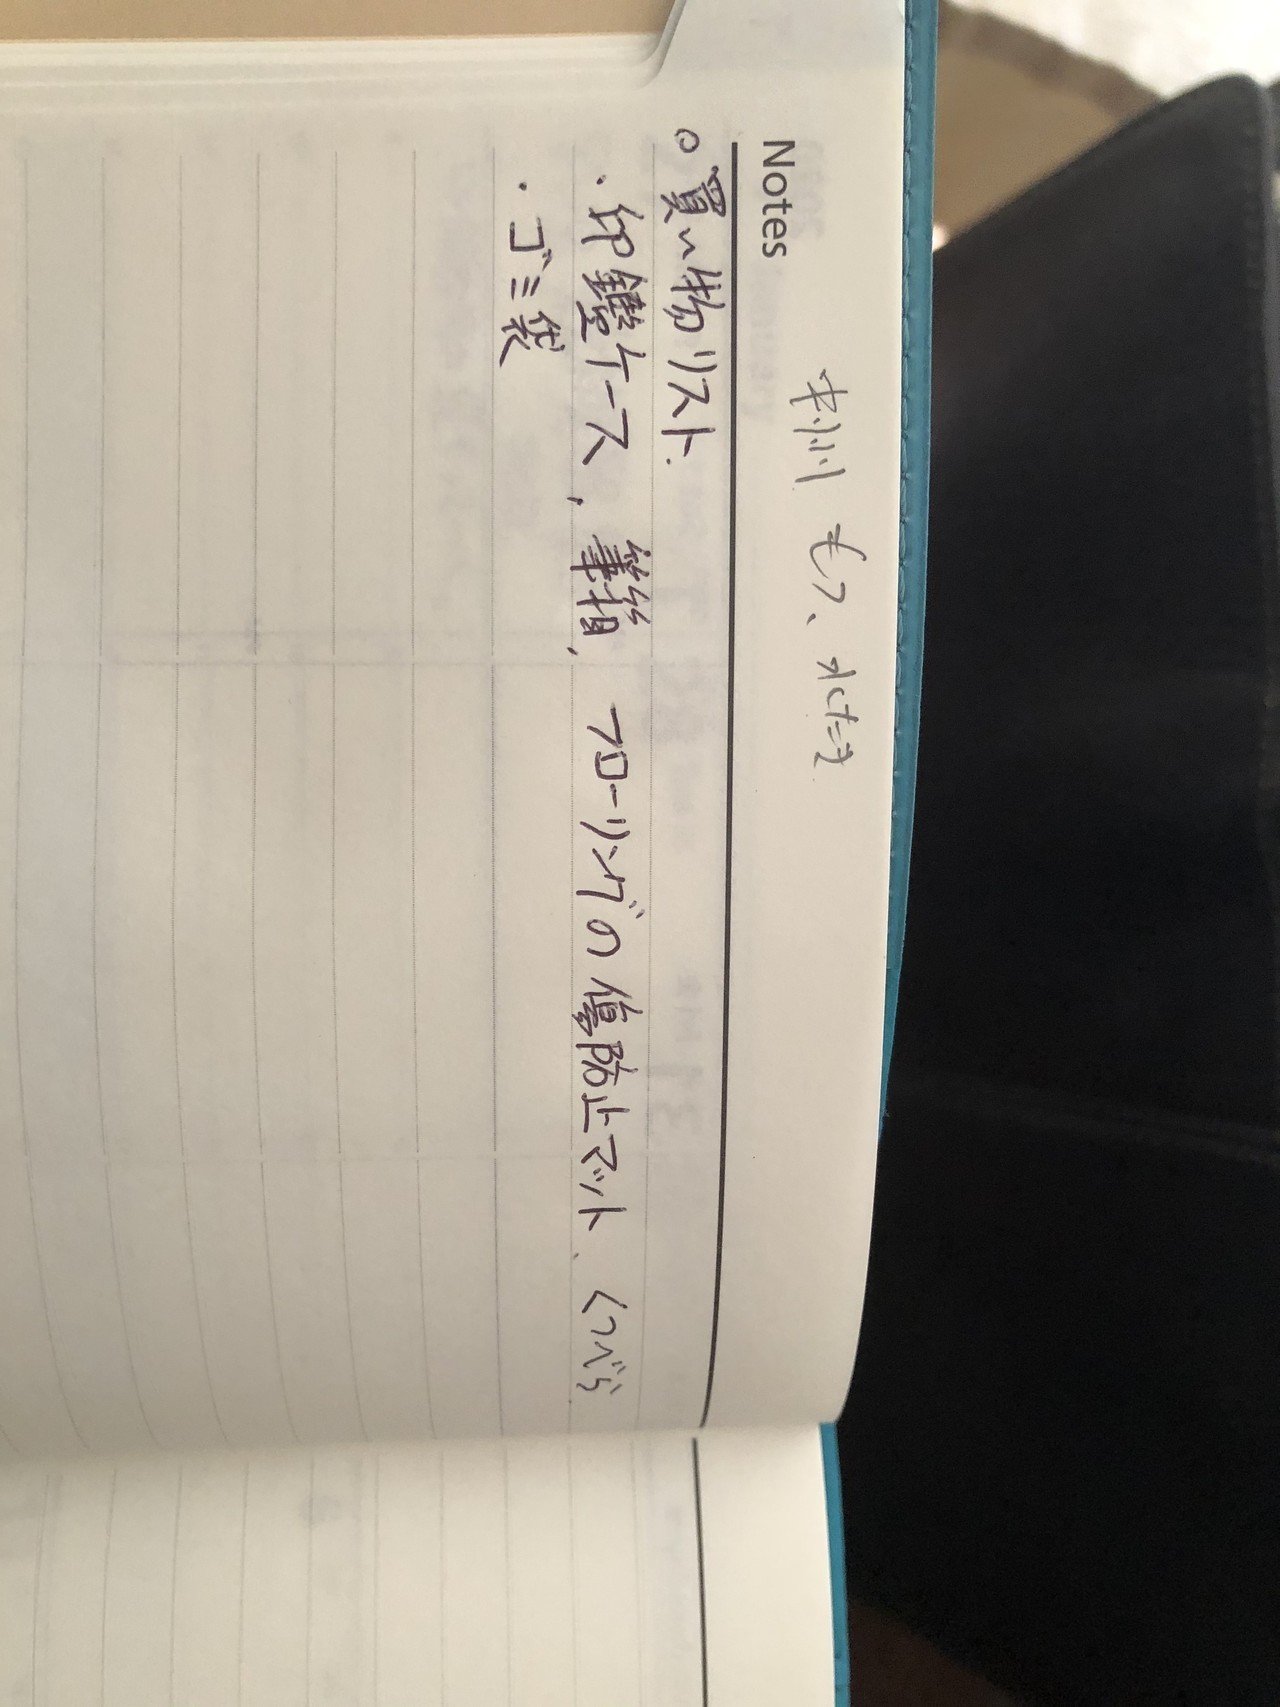 Notes
もつ、水たき
○買い物リスト.
・印鑑ケース, 筆箱, フローリングの傷防止マット、くつべら
・ゴミ袋